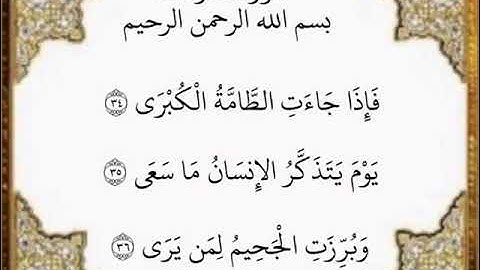 بسم الله الرحمن الرحيم
فَإِذَا جَاءَتِ الطَّامَّةُ الْكُبْرَى ٣٤
يَوْمَ يَتَذَكَّرُ الإِنسَانُ مَا سَعَى ٣٥
وَبُرِّزَتِ الْجَحِيمُ لِمَن يَرَى ٣٦